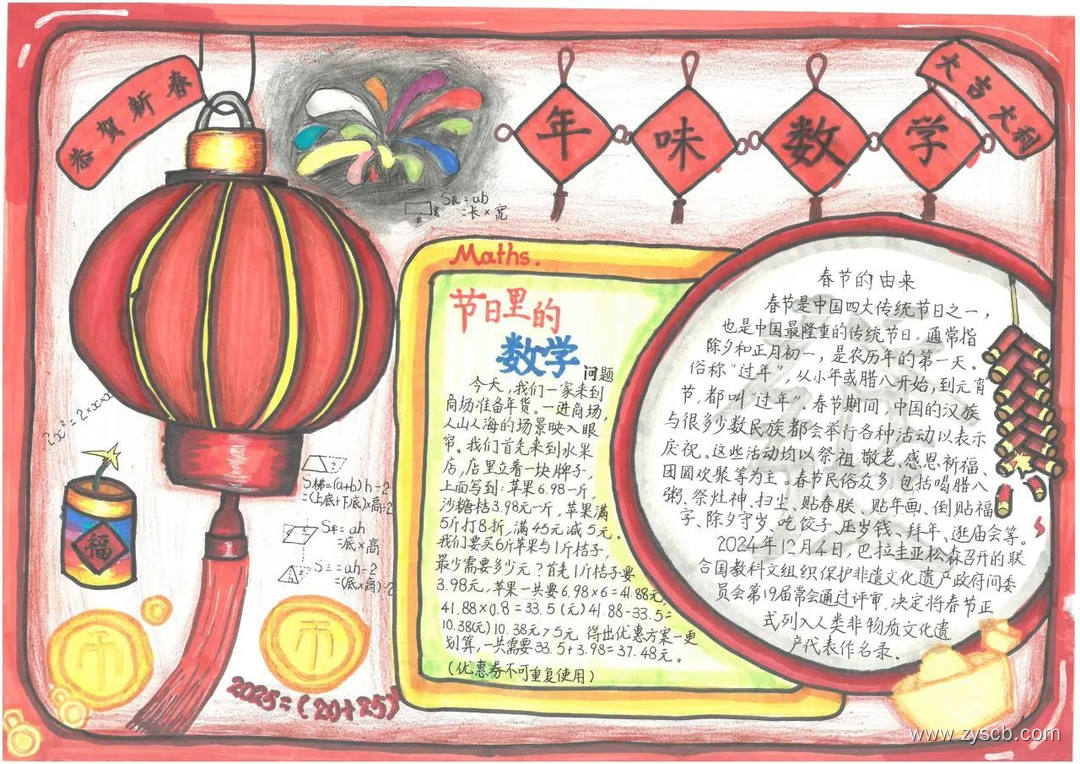 恭贺新春
年味数学
大吉大利
S长=ab
=长×宽
Maths.
节日里的
数学问题
今天,我们一家来到
商场准备年货。一进商场,
人山人海的场景映入眼
帘。我们首先来到水果
店,店里立着一块牌子.
上面写到:苹果6.98一斤,
沙糖桔3.98元一斤,苹果满
5斤打8折,满45元减5元。
我们要买6斤苹果与1斤桔子,
最少需要多少元?首先1斤桔子要
3.98元,苹果一共要6.98×6=41.88元,
41.88×0.8=33.5(元)41.88-33.5=
10.38(元)10.38元>5元 得出优惠方案一更
划算,一共需要33.5+3.98=37.48元。
(优惠券不可重复使用)
春节的由来
春节是中国四大传统节日之一,
也是中国最隆重的传统节日。通常指
除夕和正月初一,是农历年的第一天。
俗称“过年”,从小年或腊八开始,到元宵
节,都叫“过年”。春节期间,中国的汉族
与很多少数民族都会举行各种活动以表示
庆祝。这些活动均以祭祖、敬老、感恩祈福、
团圆欢聚等为主。春节民俗众多,包括喝腊八
粥、祭灶神、扫尘、贴春联、贴年画、倒贴福
字、除夕守岁、吃饺子、压岁钱、拜年、逛庙会等。
2024年12月4日,巴拉圭亚松森召开的联
合国教科文组织保护非遗文化遗产政府间委
员会第19届常会通过评审,决定将春节正
式列入人类非物质文化遗
产代表作名录.
S梯=(a+b)h÷2
=(上底+下底)×高÷2
S平=ah
=底×高
S三=ah÷2
=(底×高)÷2
福
2025=(20+25)
www.zyscb.com